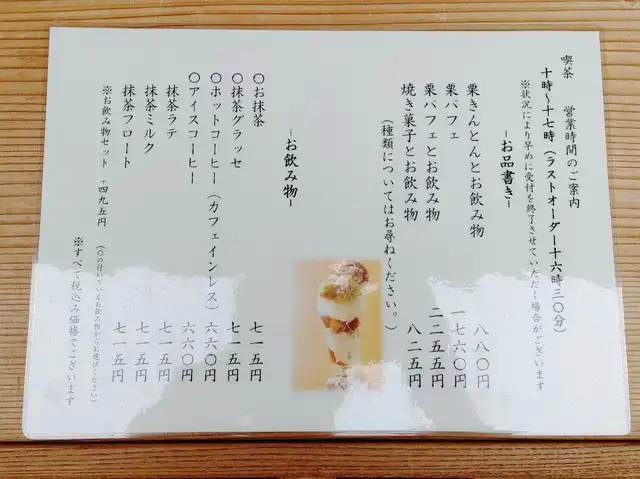 喫茶　営業時間のご案内
十時～十七時（ラストオーダー十六時三〇分）
※状況により早めに受付を終了させていただく場合がございます
-お品書き-
栗きんとんとお飲み物　八八〇円
栗パフェ　一七六〇円
栗パフェとお飲み物　二二五五円
焼き菓子とお飲み物　八二五円
（種類についてはお尋ねください。）
-お飲み物-
〇お抹茶　七一五円
〇抹茶グラッセ　七一五円
〇ホットコーヒー（カフェインレス）　六六〇円
〇アイスコーヒー　六六〇円
抹茶ラテ　七一五円
抹茶ミルク　七一五円
抹茶フロート　七一五円
※お飲み物セット　+四九五円
（〇の付いているお飲み物からお選びください）
※すべて税込み価格でございます